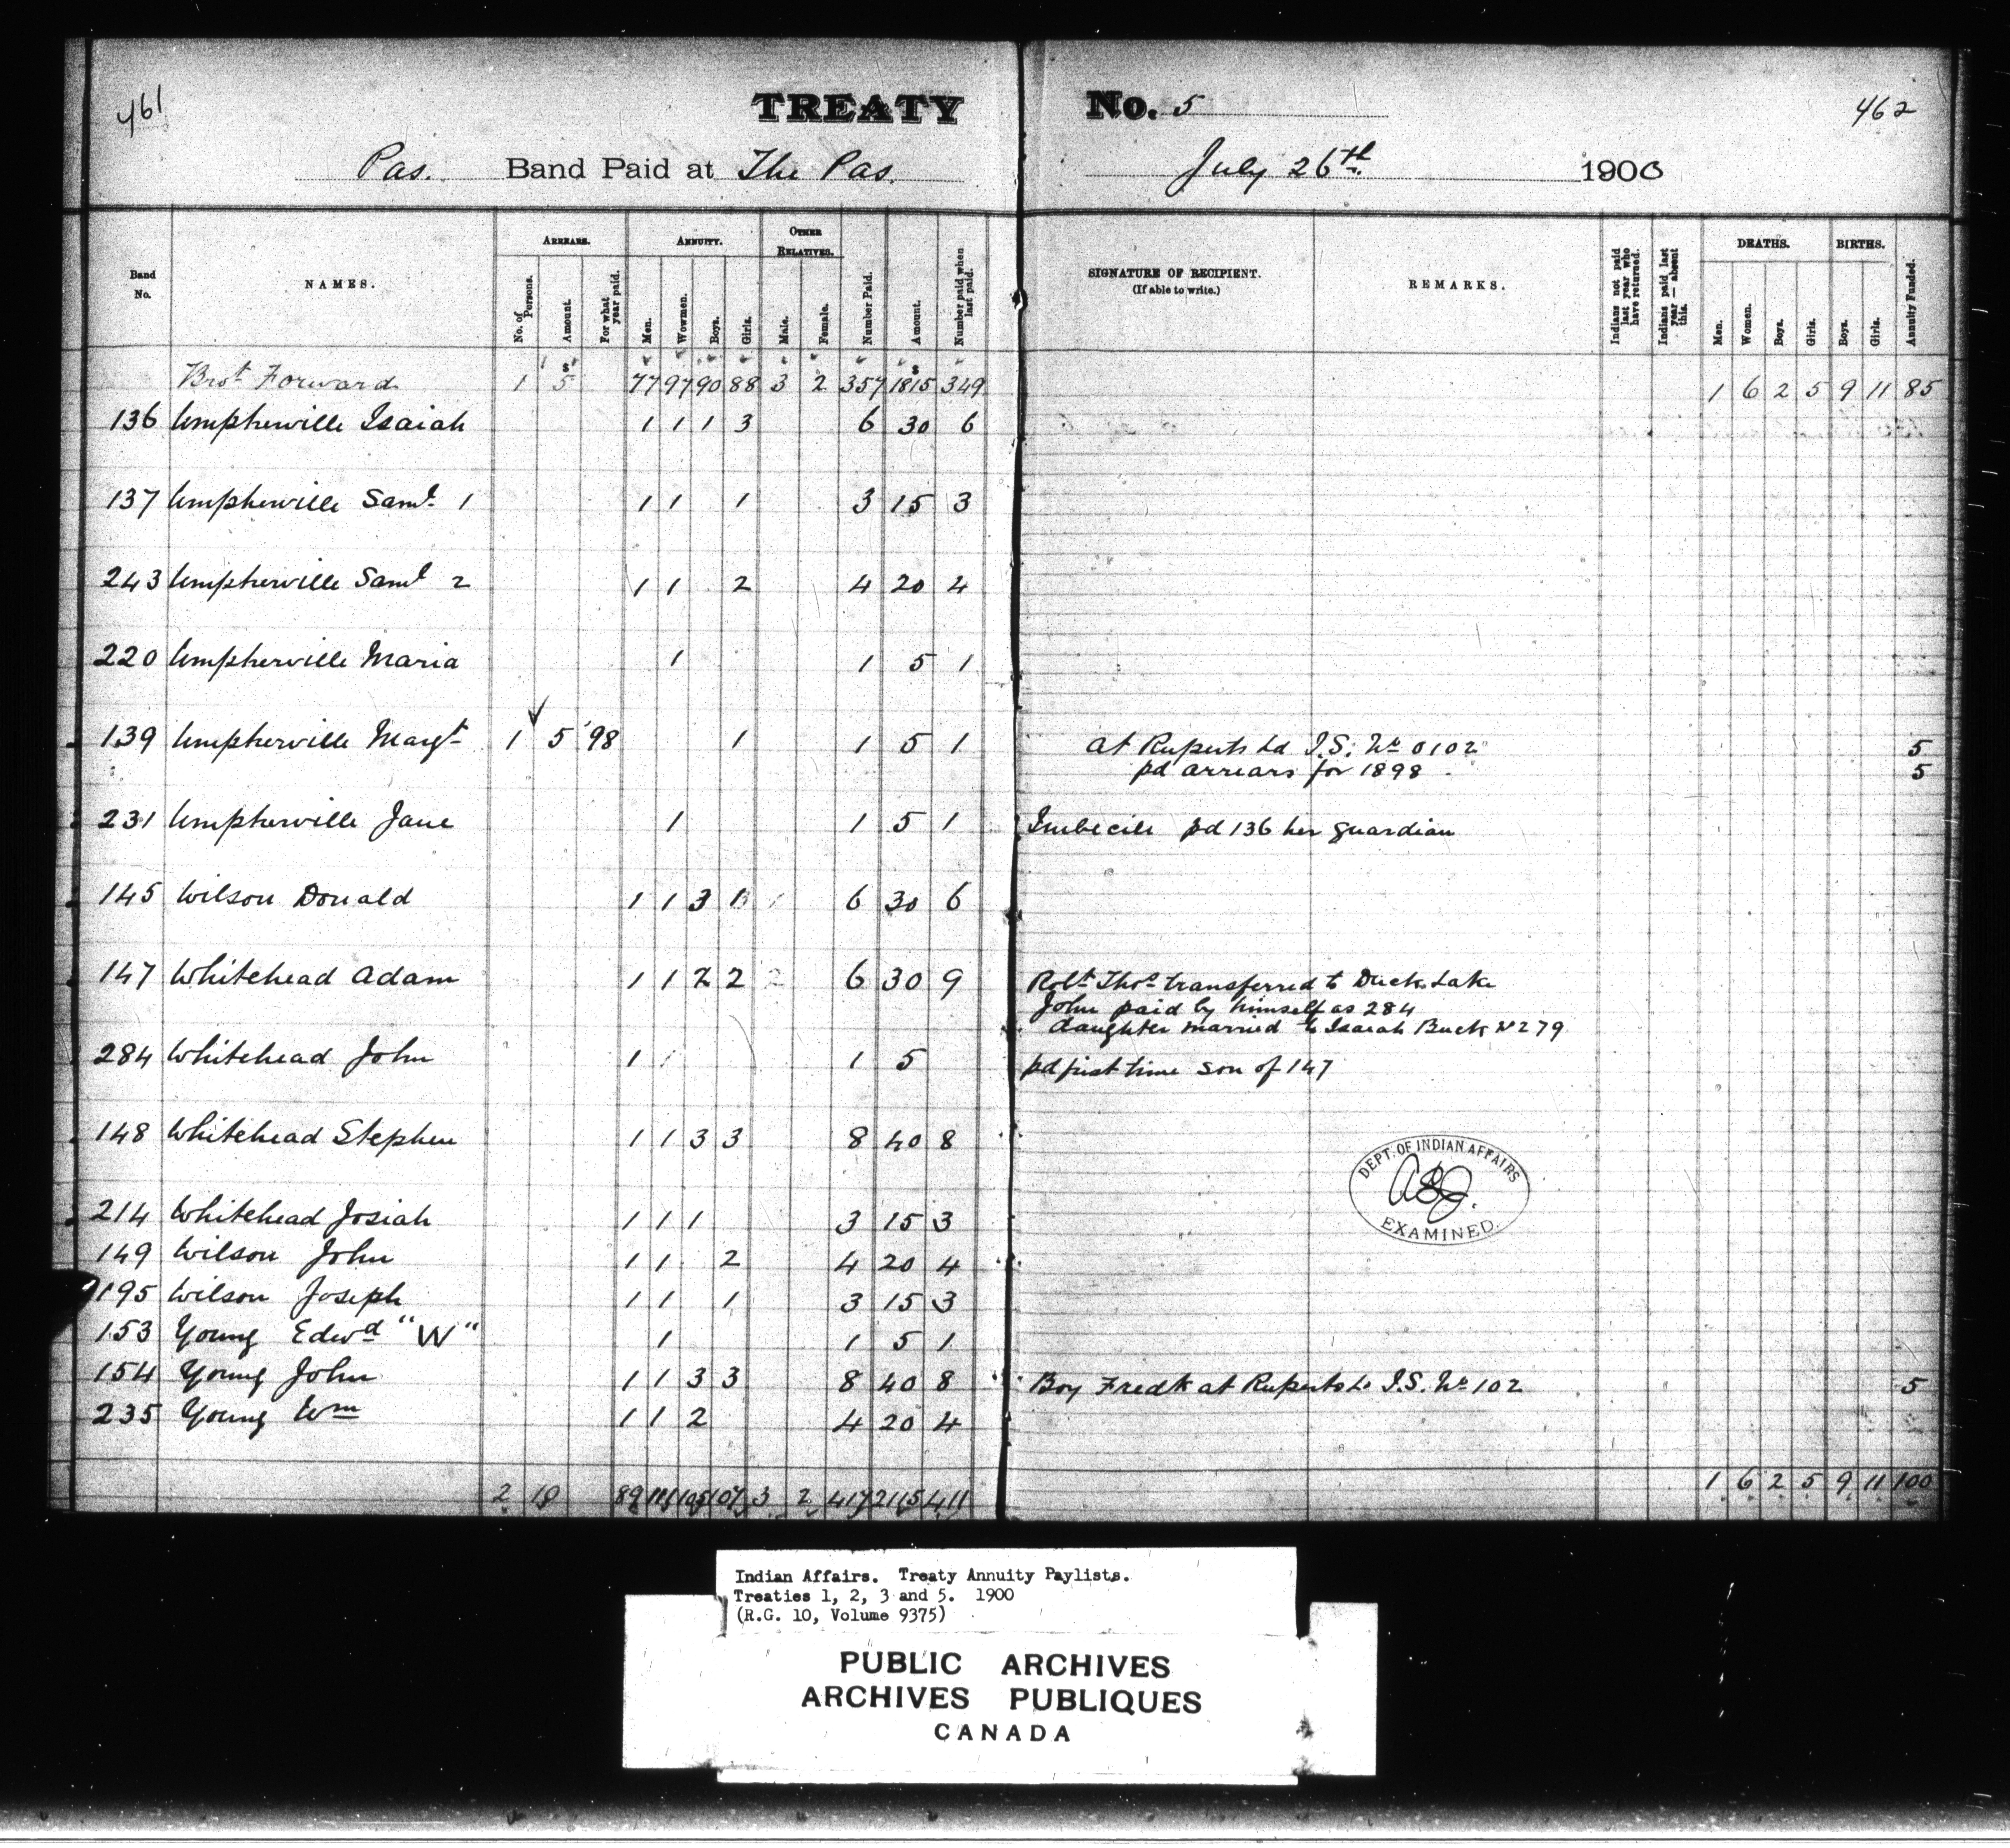 461
TREATY No. 5
462
Pas. Band Paid at The Pas. July 26th 1900
Band No.
NAMES.
ARREARS.
No. of Persons.
Amount.
For what year paid.
ANNUITY.
Men.
Wowmen.
Boys.
Girls.
OTHER RELATIVES.
Male.
Female.
Number Paid.
Amount.
Number paid when last paid.
SIGNATURE OF RECIPIENT.
(If able to write.)
REMARKS.
Indians not paid last year who have returned.
Indians paid last year — absent this.
DEATHS.
Men.
Women.
Boys.
Girls.
BIRTHS.
Boys.
Girls.
Annuity Funded.
Brot Forward 1 $5 77 97 90 88 3 2 357 $1815 349 1 6 2 5 9 11 85
136 Umpherville Isaiah 1 1 1 3 6 30 6
137 Umpherville Saml 1 1 1 1 3 15 3
243 Umpherville Saml 2 1 1 2 4 20 4
220 Umpherville Maria 1 1 5 1
139 Umpherville Margt 1 5 '98 1 1 5 1 at Ruperts Ld I.S. No 0102 5
pd arrears for 1898 5
231 Umpherville Jane 1 1 5 1 Imbecile pd 136 her guardian
145 Wilson Donald 1 1 3 1 6 30 6
147 Whitehead Adam 1 1 2 2 6 30 9 Robt Thos transferred to Duck Lake
John paid by himself as 284
daughter married to Isaiah Buck No 279
284 Whitehead John 1 1 5 pd first time son of 147
148 Whitehead Stephen 1 1 3 3 8 40 8
DEPT. OF INDIAN AFFAIRS
EXAMINED.
214 Whitehead Josiah 1 1 1 3 15 3
149 Wilson John 1 1 2 4 20 4
195 Wilson Joseph 1 1 1 3 15 3
153 Young Edwd "W" 1 1 5 1
154 Young John 1 1 3 3 8 40 8 Boy Fredk at Ruperts Ld I.S. No 102 5
235 Young Wm 1 1 2 4 20 4
2 10 89 111 105 107 3 2 417 2115 411 1 6 2 5 9 11 100
Indian Affairs. Treaty Annuity Paylists.
Treaties 1, 2, 3 and 5. 1900
(R.G. 10, Volume 9375)
PUBLIC ARCHIVES
ARCHIVES PUBLIQUES
CANADA